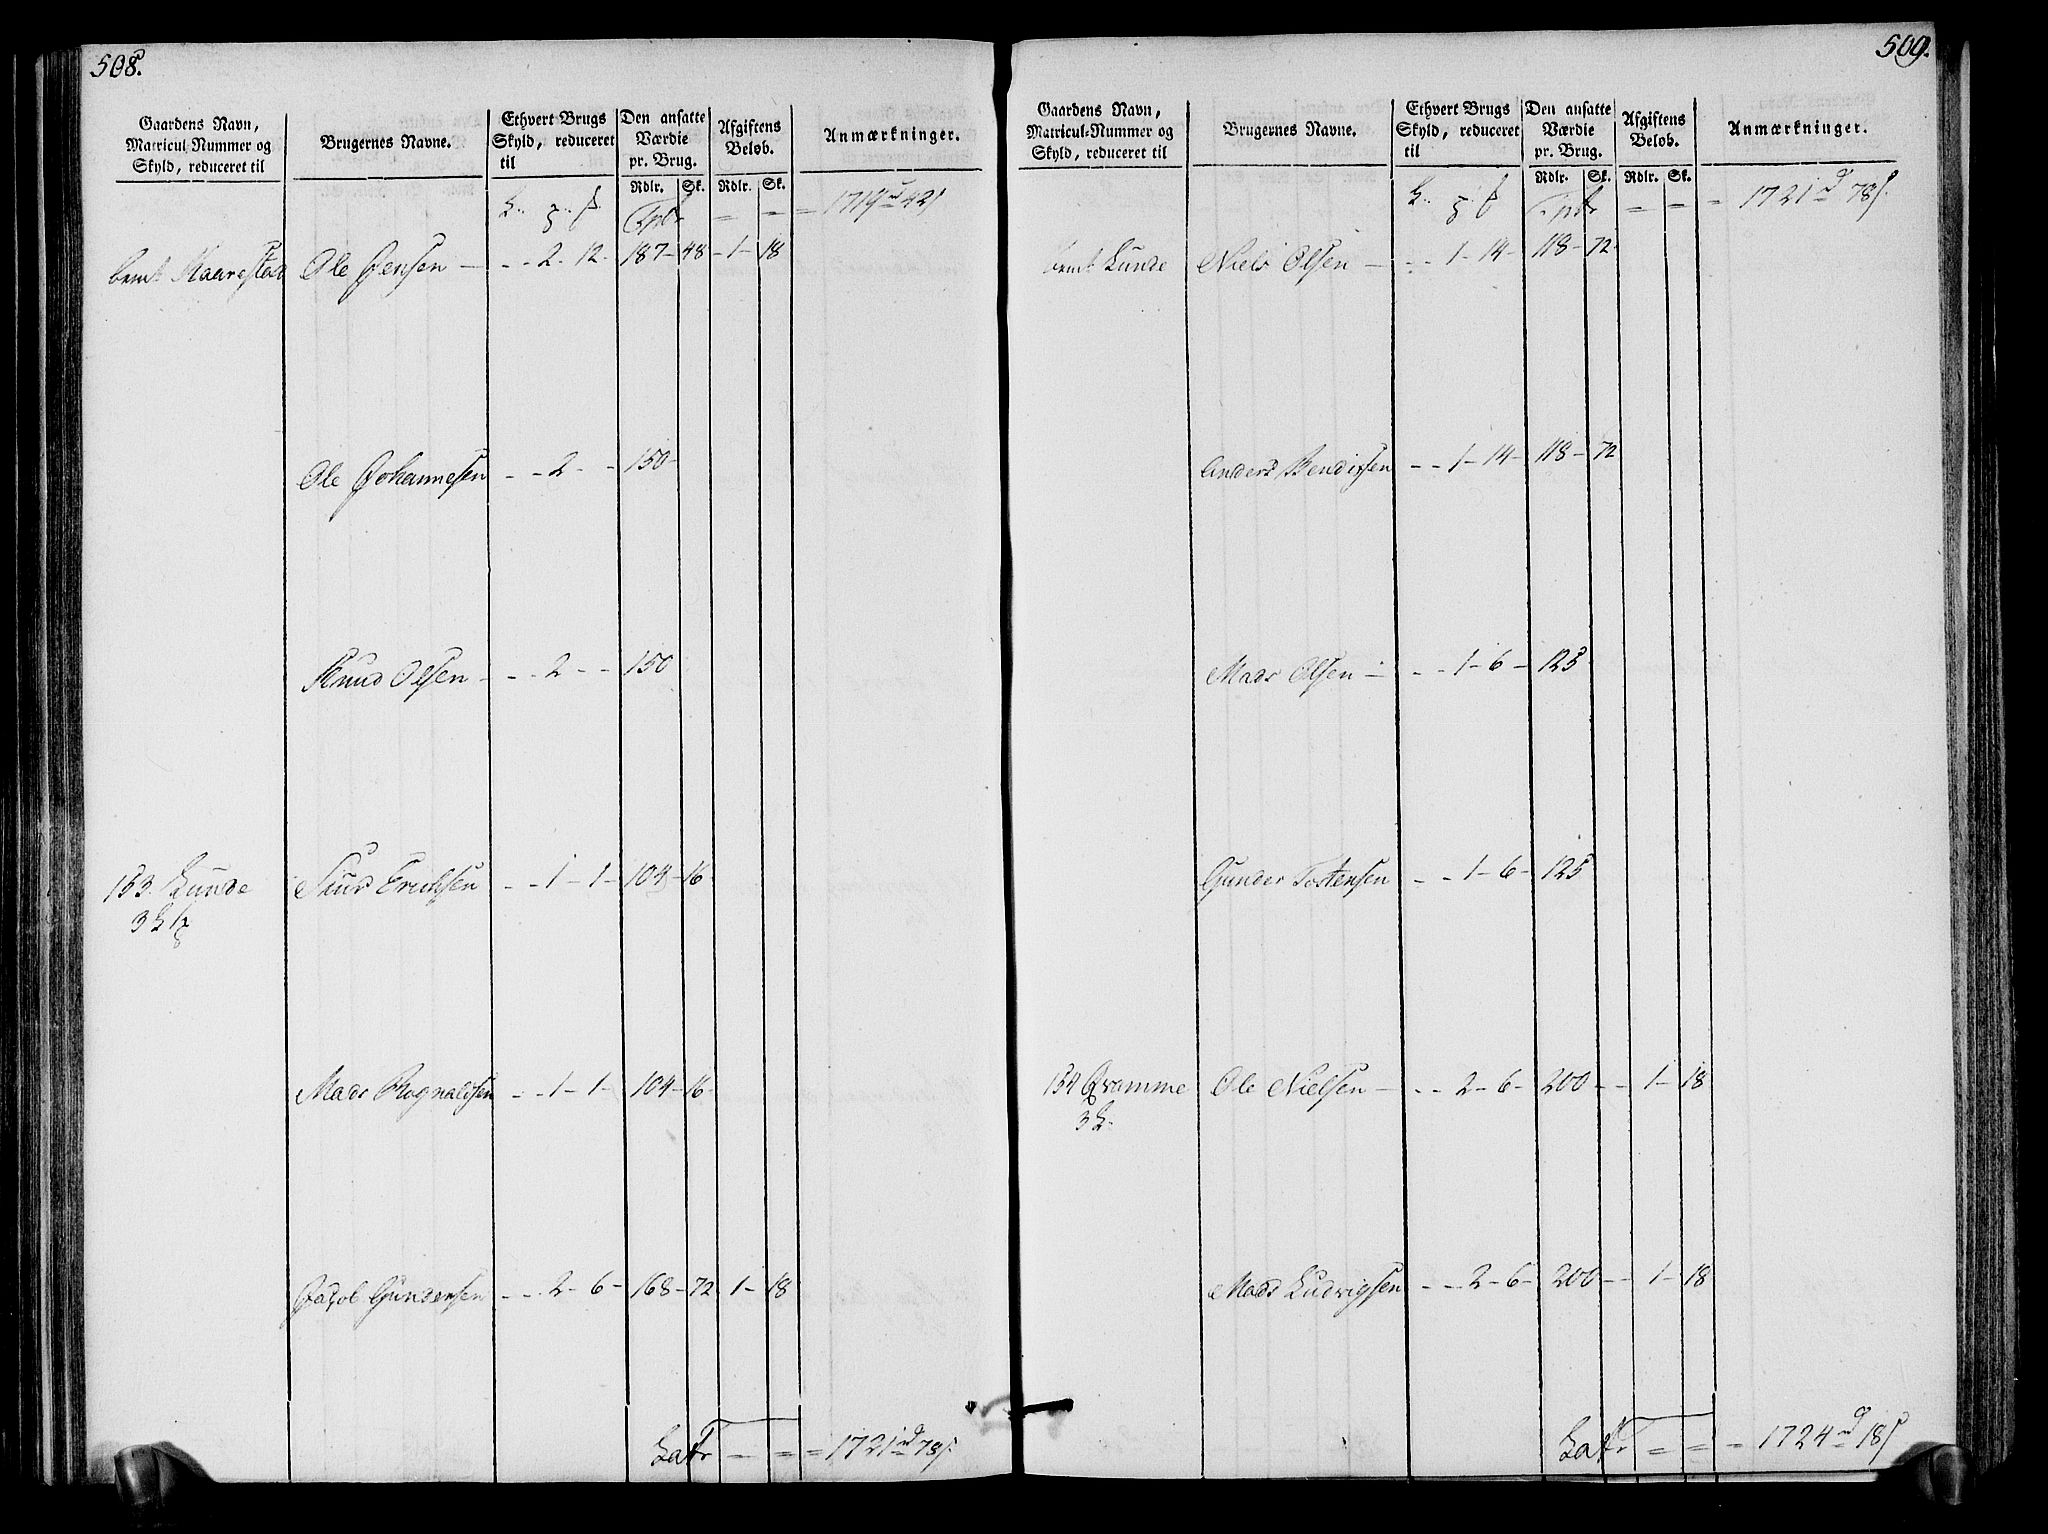 508.
Gaardens Navn, Matricul-Nummer og Skyld, reduceret til
Brugernes Navne.
Ethvert Brugs Skyld, reduceret til
Den ansatte Værdie pr. Brug.
Afgiftens Beløb.
Anmærkninger.
Rdlr. Sk. Rdlr. Sk.
Tptr = = = 1719 rd 42 s
bemt Kaarestad Ole Jensen - - - 2 - 12 - 187 - 48 - 1 - 18
Ole Johannesen - - 2 - - 150 -
Knud Olsen - - - 2 - - 150
153. Lunde Siur Erichsen - - 1 - 1 - 104 - 16
3 L 1
Mads Rognaldsen - - 1 - 1 - 104 - 16 -
Jacob Gundersen - - 2 - 6 - 168 - 72 1 - 18
Latr = = = 1721 rd 78 s.
509.
Gaardens Navn, Matricul-Nummer og Skyld, reduceret til
Brugernes Navne.
Ethvert Brugs Skyld, reduceret til
Den ansatte Værdie pr. Brug.
Afgiftens Beløb.
Anmærkninger.
Rdlr. Sk. Rdlr. Sk.
Tptr = = = 1721 rd 78 s.
bemt Lunde Niels Olsen - - - 1 - 14 - 118 - 72
Anders Bendixsen - - 1 - 14 - 118 - 72
Mads Olsen - - - 1 - 6 - 125
Gunder Tostensen - - 1 - 6 - 125
154 Qvamme Ole Nielsen - - - 2 - 6 - 200 - - 1 - 18
3 L.
Mads Ludvigsen - - 2 - 6 - 200 - - 1 - 18
Latr = = = 1724 rd 18 s